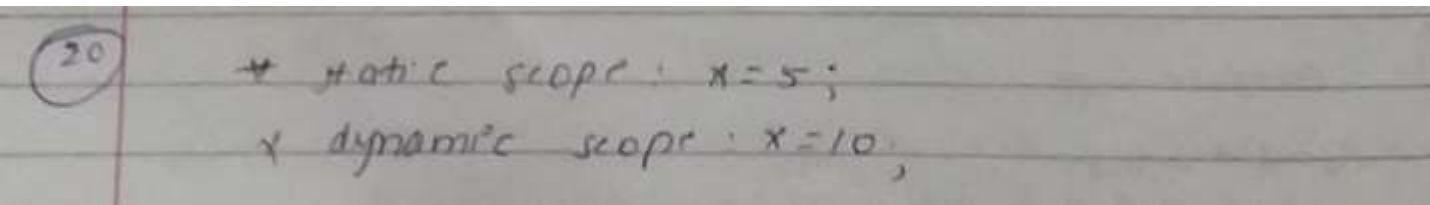 20
* static scope : x = 5;
* dynamic scope : x = 10;